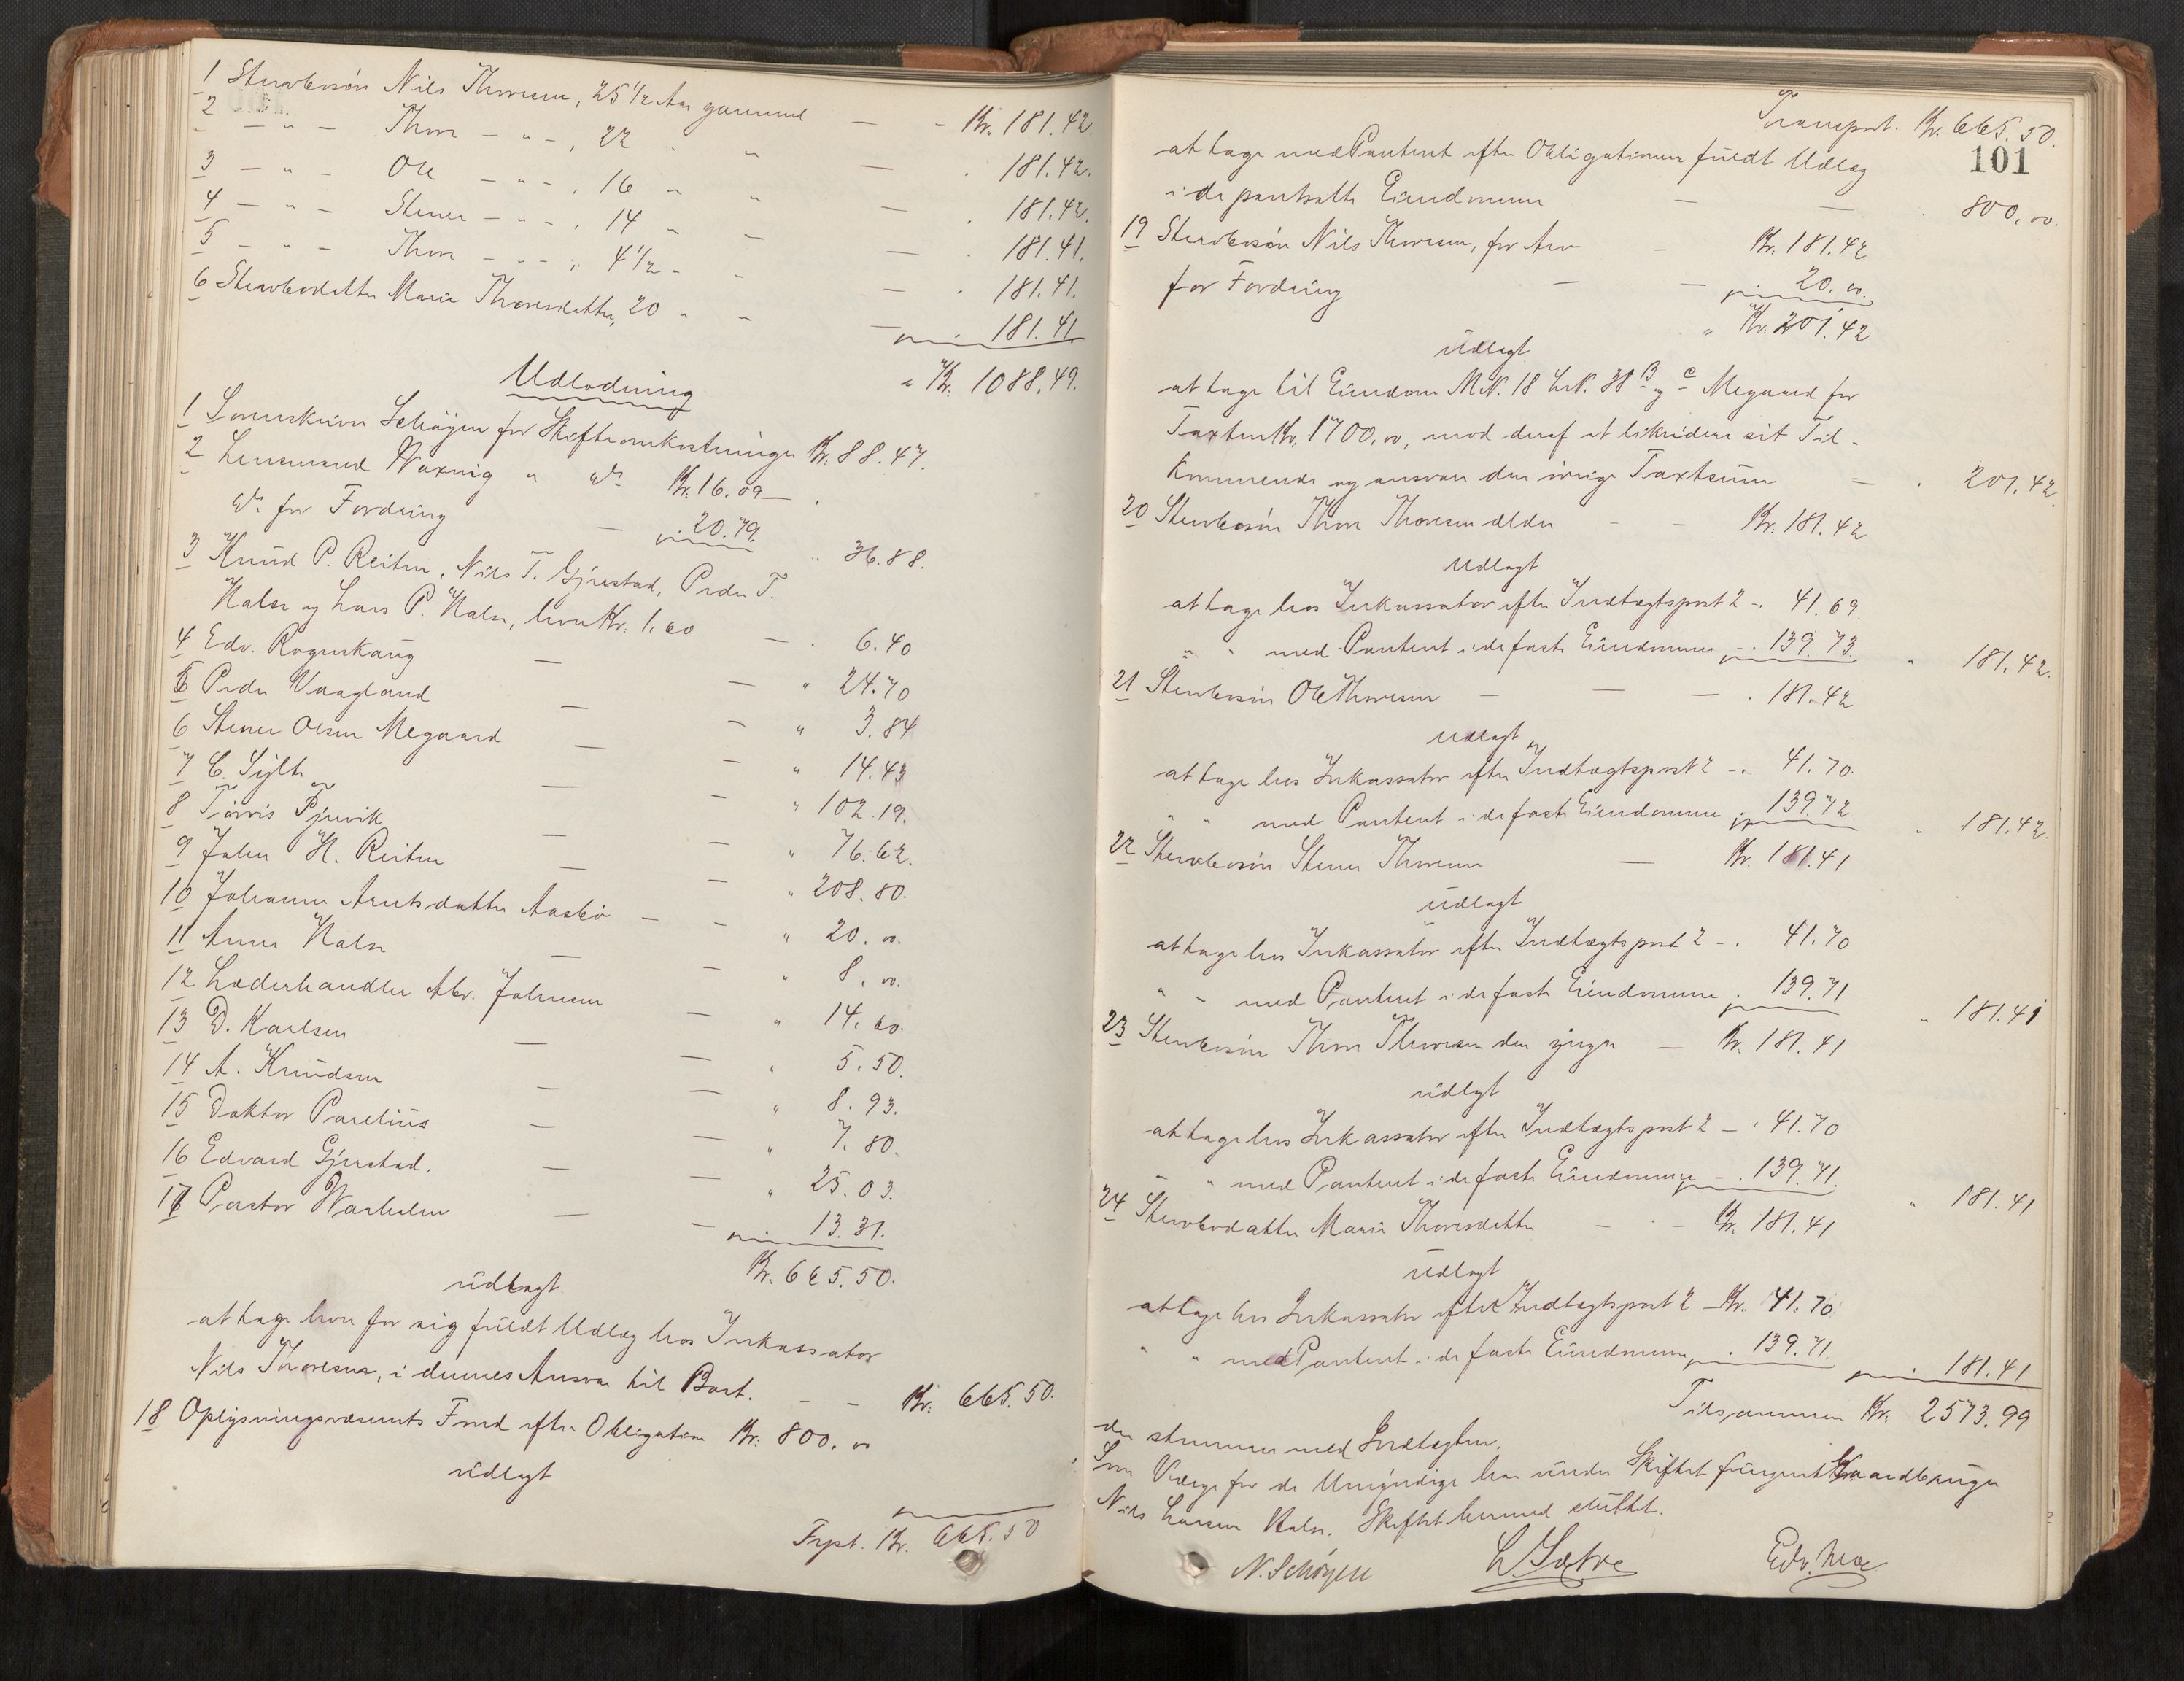 1 Stervbosøn Nils Thoresen, 25 1/2 Aar gammel — - Kr. 181.42.
2 - " - Thore - " - , 22 " " — . 181.42.
3 - " - Ole - " - , 16 " " — . 181.42.
4 - " - Stener - " - , 14 " " — . 181.41.
5 - " - Thore - " - , 4 1/2 " " — . 181.41.
6 Stervbodatter Marie Thoresdatter, 20 " " — . 181.41
" Kr. 1088.49.
Udlodning
1 Sorenskriver Schøyen for Skifteomkostninger Kr. 88.47.
2 Lensmand Woxnig " do Kr. 16.09 —
do for Fordring — . 20.79. " 36.88.
3 Knud P. Reiten, Nils T. Gjerstad, Peder T.
Halse og Lars P. Halse, hver Kr. 1.60 — . 6.40
4 Edv. Rognskaug — — " 24.70
5 Peder Vaagland — — " 3.84
6 Stener Olsen Megaard — — " 14.43
7 C. Sylte — — " 102.19.
8 Tørris Fjervik — — " 76.62.
9 John H. Reiten — — " 208.80.
10 Johanne Arntsdatter Aasbø — — " 20.00.
11 Anne Halse — — " 8.00.
12 Læderhandler Abr. Johnsen — " 14.60.
13 D. Karlsen — — " 5.50.
14 A. Knudsen — — " 8.93.
15 Doktor Parelius — — " 7.80.
16 Edvard Gjerstad. — — " 25.03.
17 Pastor Warholm — — . 13.31.
Kr. 665.50.
udlagt
at tage hver for sig fuldt Udlæg hos Inkassator
Nils Thoresen, i dennes Ansvar til Boet. - - Kr. 665.50.
18 Oplysningsvæsenets Fond efter Obligation Kr. 800.00
udlagt
Trpt. Kr. 665.50
Transport. Kr. 665.50.
101
at tage med Panteret efter Obligationen fuldt Udlæg
i de pantsatte Eiendomme — — . 800.00.
19 Stervbosøn Nils Thoresen, for Arv - Kr. 181.42
for Fordring — — . 20.00.
" Kr. 201.42
udlagt
at tage til Eiendom M.N. 18 L.N. 38 B og C Megaard for
Taxten Kr. 1700,00, mod deraf at likvidere sit Til-
kommende og ansvare den øvrige Taxtsum — . 201.42
20 Stervbosøn Thore Thoresen ældre - - Kr. 181.42
Udlagt
at tage hos Inkassator efter Indtægtspost 2 - . 41.69
" " med Panteret i de faste Eiendomme - . 139.73. " 181.42.
21 Stervbosøn Ole Thoresen — — — . 181.42
udlagt
at tage hos Inkassator efter Indtægtspost 2 - . 41.70.
" " med Panteret i de faste Eiendomme . 139.72. " 181.42.
22 Stervbosøn Stener Thoresen — Kr. 181.41
udlagt
at tage hos Inkassator efter Indtægtspost 2 - . 41.70
" " med Panteret i de faste Eiendomme . 139.71 " 181.41
23 Stervbosøn Thore Thoresen den yngre — Kr. 181.41
udlagt
at tage hos Inkassator efter Indtægtspost 2 - . 41.70
" " med Panteret i de faste Eiendomme - . 139.71. " 181.41
24 Stervbodatter Marie Thoresdatter - - - Kr. 181.41
udlagt
at tage hos Inkassator efter Indtægtspost 2 - Kr. 41.70.
" " med Panteret i de faste Eiendomme . 139.71. . 181.41
Tilsammen Kr. 2573.99
der stemmer med Indtægten.
Som Værge for de Umyndige har under Skiftet fungeret Gaardbruger
Nils Larsen Halse. Skiftet hermed sluttet.
N. Schøyen L. Sætre Edv. Moe